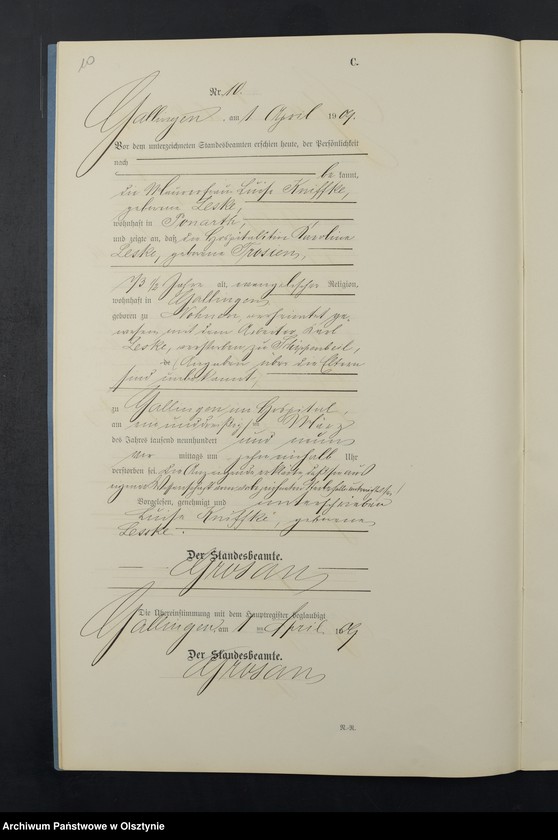 10
C.
Nr. 10.
Gallingen, am 1 April 1909.
Vor dem unterzeichneten Standesbeamten erschien heute, der Persönlichkeit
nach
be kannt,
die Maurerfrau Luise Kniffke,
geborene Leske,
wohnhaft in Ponarth,
und zeigte an, daß die Hospitalitin Karoline
Leske, geborene Trosien,
73 ½ Jahre alt, evangelischer Religion,
wohnhaft in Gallingen
geboren zu verheiratet ge-
wesen mit dem Arbeiter Karl
Leske, verstorben zu Schippenbeil,
Angaben über die Eltern
sind unbekannt,
zu Gallingen im Hospital,
am einunddreißigsten März
des Jahres tausend neunhundert und neun
vor mittags um zehneinhalb Uhr
verstorben sei. Die Anzeigende erklärte, daß sie aus
eigener Wissenschaft von dem Sterbefalle unterrichtet sei.
Vorgelesen, genehmigt und unterschrieben
Luise Kniffke, geborene
Leske.
Der Standesbeamte.
Grosan
Die Übereinstimmung mit dem Hauptregister beglaubigt
Gallingen, am 1 ten April 1909
Der Standesbeamte.
Grosan
R.-R.
Archiwum Państwowe w Olsztynie